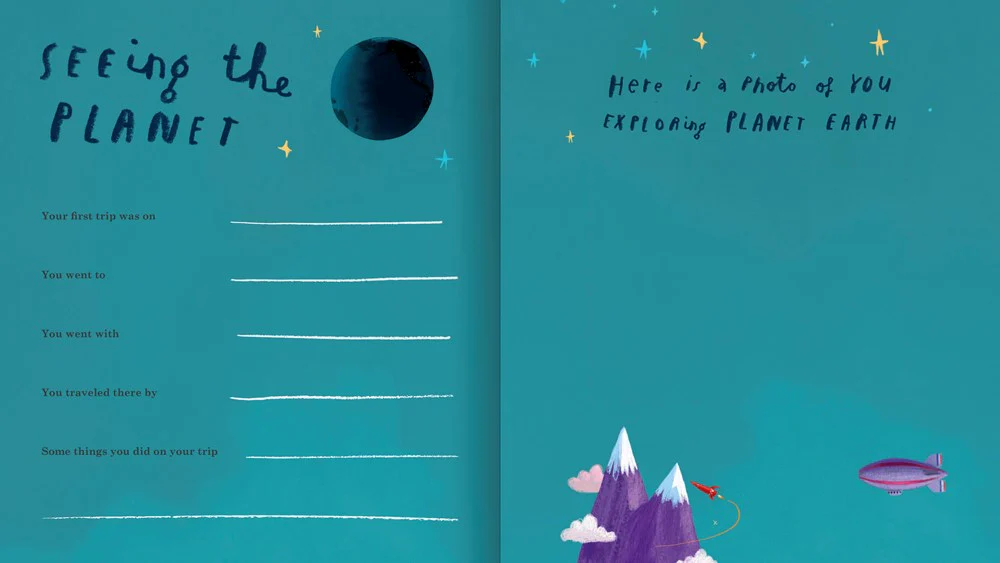 SEEing the
PLANET
Your first trip was on
You went to
You went with
You traveled there by
Some things you did on your trip
Here is a Photo of YOU
EXPLORing PLANET EARTH